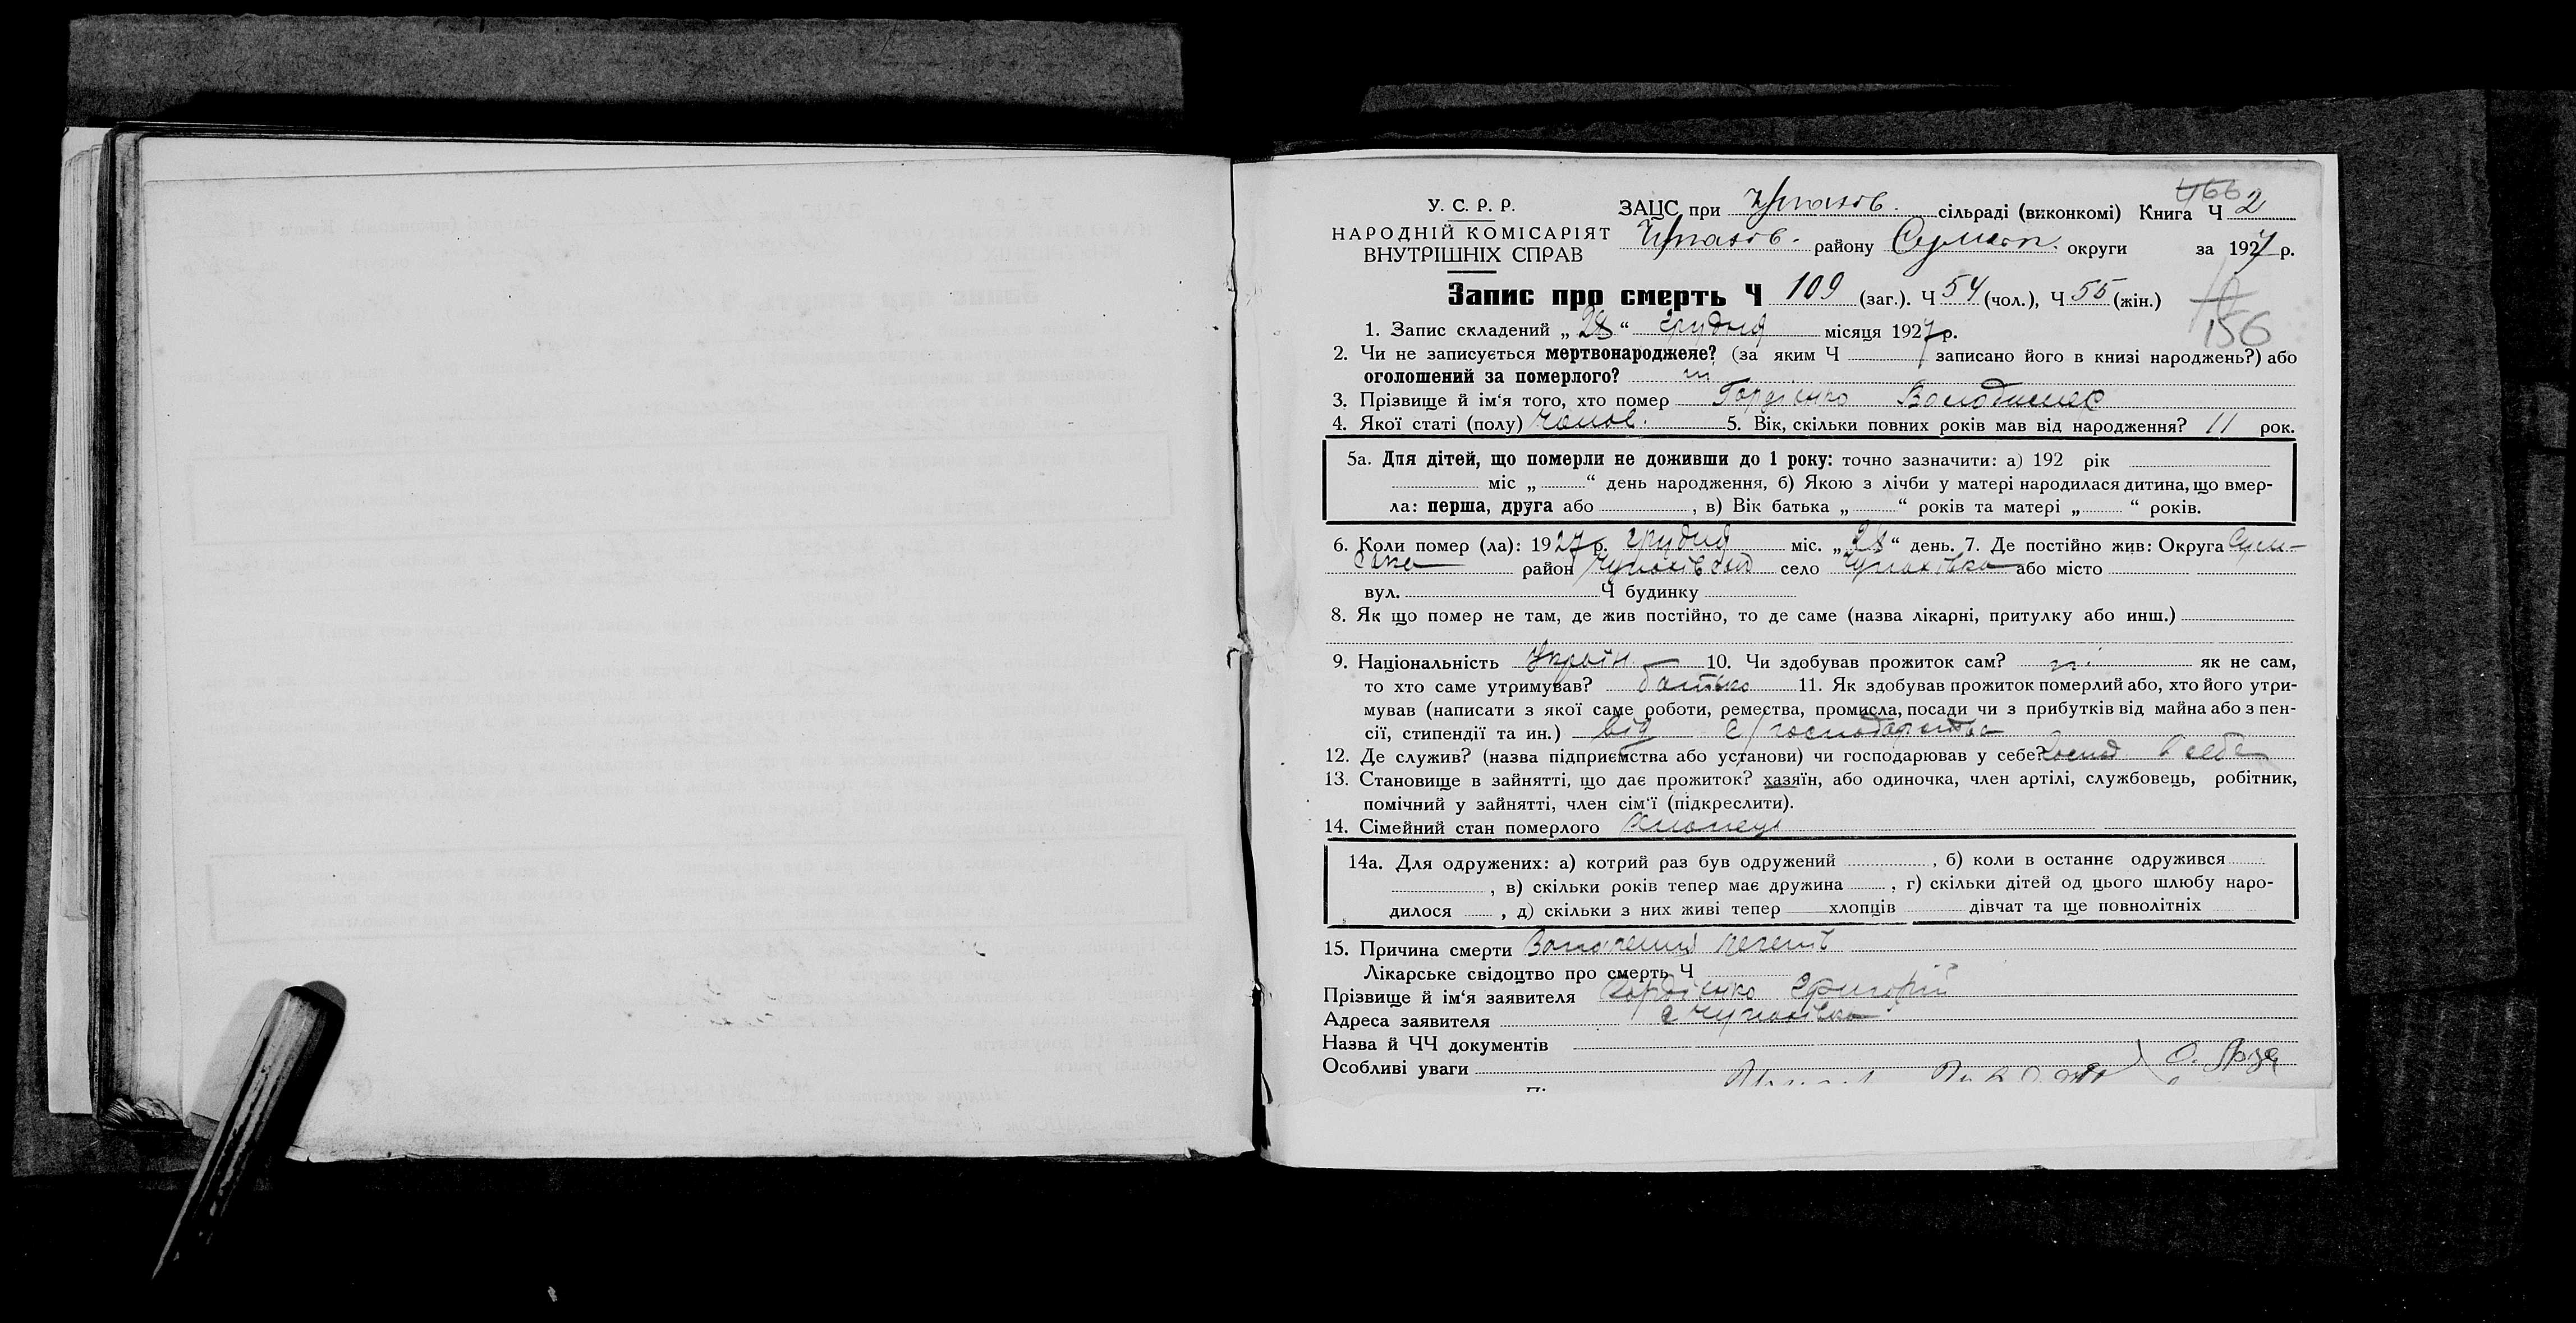 466
У. С. Р. Р. ЗАЦС при Чупахов. сільраді (виконкомі) Книга Ч 2
НАРОДНІЙ КОМІСАРІЯТ Чупахов. району Сумськ. округи за 1927 р.
ВНУТРІШНІХ СПРАВ
Запис про смерть Ч 109 (заг.). Ч 54 (чол.), Ч 55 (жін.)
156
1. Запис складений „ 28 “ грудня місяця 1927 р.
2. Чи не записується мертвонароджене? (за яким Ч записано його в книзі народжень?) або
оголошений за померлого? ні
3. Прізвище й ім‘я того, хто помер Гордієнко Володимер
4. Якої статі (полу) чолов. 5. Вік, скільки повних років мав від народження? 11 рок.
5а. Для дітей, що померли не доживши до 1 року: точно зазначити: а) 192 рік
міс „ “ день народження, б) Якою з лічби у матері народилася дитина, що вмер-
ла: перша, друга або , в) Вік батька „ “ років та матері „ “ років.
6. Коли помер (ла): 1927 р. грудня міс. „28“ день. 7. Де постійно жив: Округа Сум-
ська район Чупахівський село Чупахівка або місто
вул. Ч будинку
8. Як що помер не там, де жив постійно, то де саме (назва лікарні, притулку або инш.)
9. Національність Україн. 10. Чи здобував прожиток сам? ні як не сам,
то хто саме утримував? батько 11. Як здобував прожиток померлий або, хто його утри-
мував (написати з якої саме роботи, ремества, промисла, посади чи з прибутків від майна або з пен-
сії, стипендії та ин.) від с/господарства
12. Де служив? (назва підприємства або установи) чи господарював у себе? господ в себе
13. Становище в зайнятті, що дає прожиток? хазяїн, або одиночка, член артілі, службовець, робітник,
помічний у зайнятті, член сім‘ї (підкреслити).
14. Сімейний стан померлого хлопець
14а. Для одружених: а) котрий раз був одружений , б) коли в останнє одружився
, в) скільки років тепер має дружина , г) скільки дітей од цього шлюбу наро-
дилося , д) скільки з них живі тепер хлопців дівчат та ще повнолітніх
15. Причина смерти Запалення печені
Лікарське свідоцтво про смерть Ч
Прізвище й ім‘я заявителя Гордієнко Григорій
Адреса заявителя с Чупахівка
Назва й ЧЧ документів
Особливі уваги